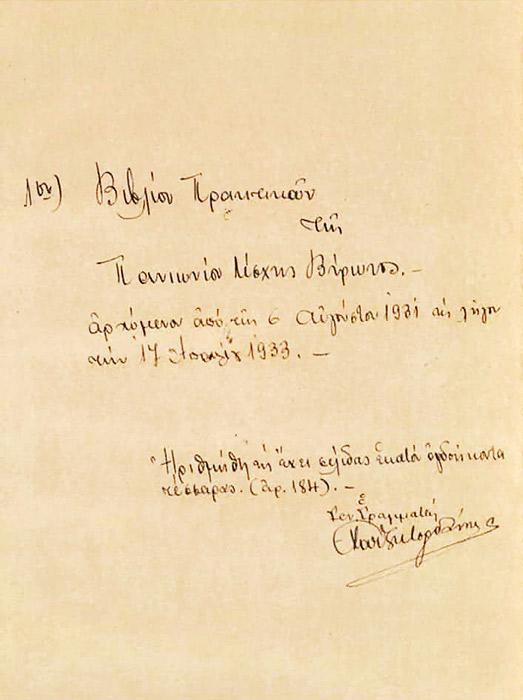 1ον) Βιβλίον Πρακτικῶν
τῆς
Πανιωνίου Λέσχης Βύρωνος. —
ἀρχόμενον ἀπὸ τῆς 6 Αὐγούστου 1931 καὶ λῆγον
τὴν 17 Ἀπριλίου 1933. —
Ἠριθμήθη καὶ ἔχει σελίδας ἑκατὸν ὀγδοήκοντα
τέσσαρας. (ἀρ. 184). —
Ὁ
Γεν. Γραμματεὺς